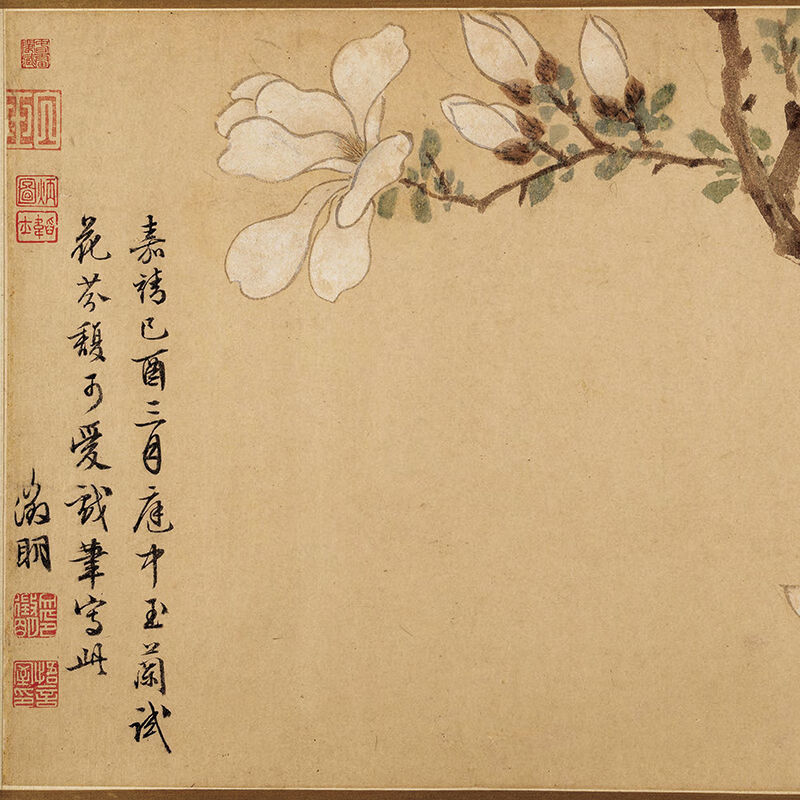 嘉靖己酉三月庭中玉蘭試
花芬馥可愛戲筆寫此
徵明